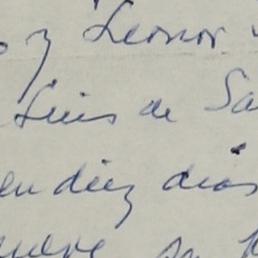 y Leonor
Luis de Sa
en diez dias